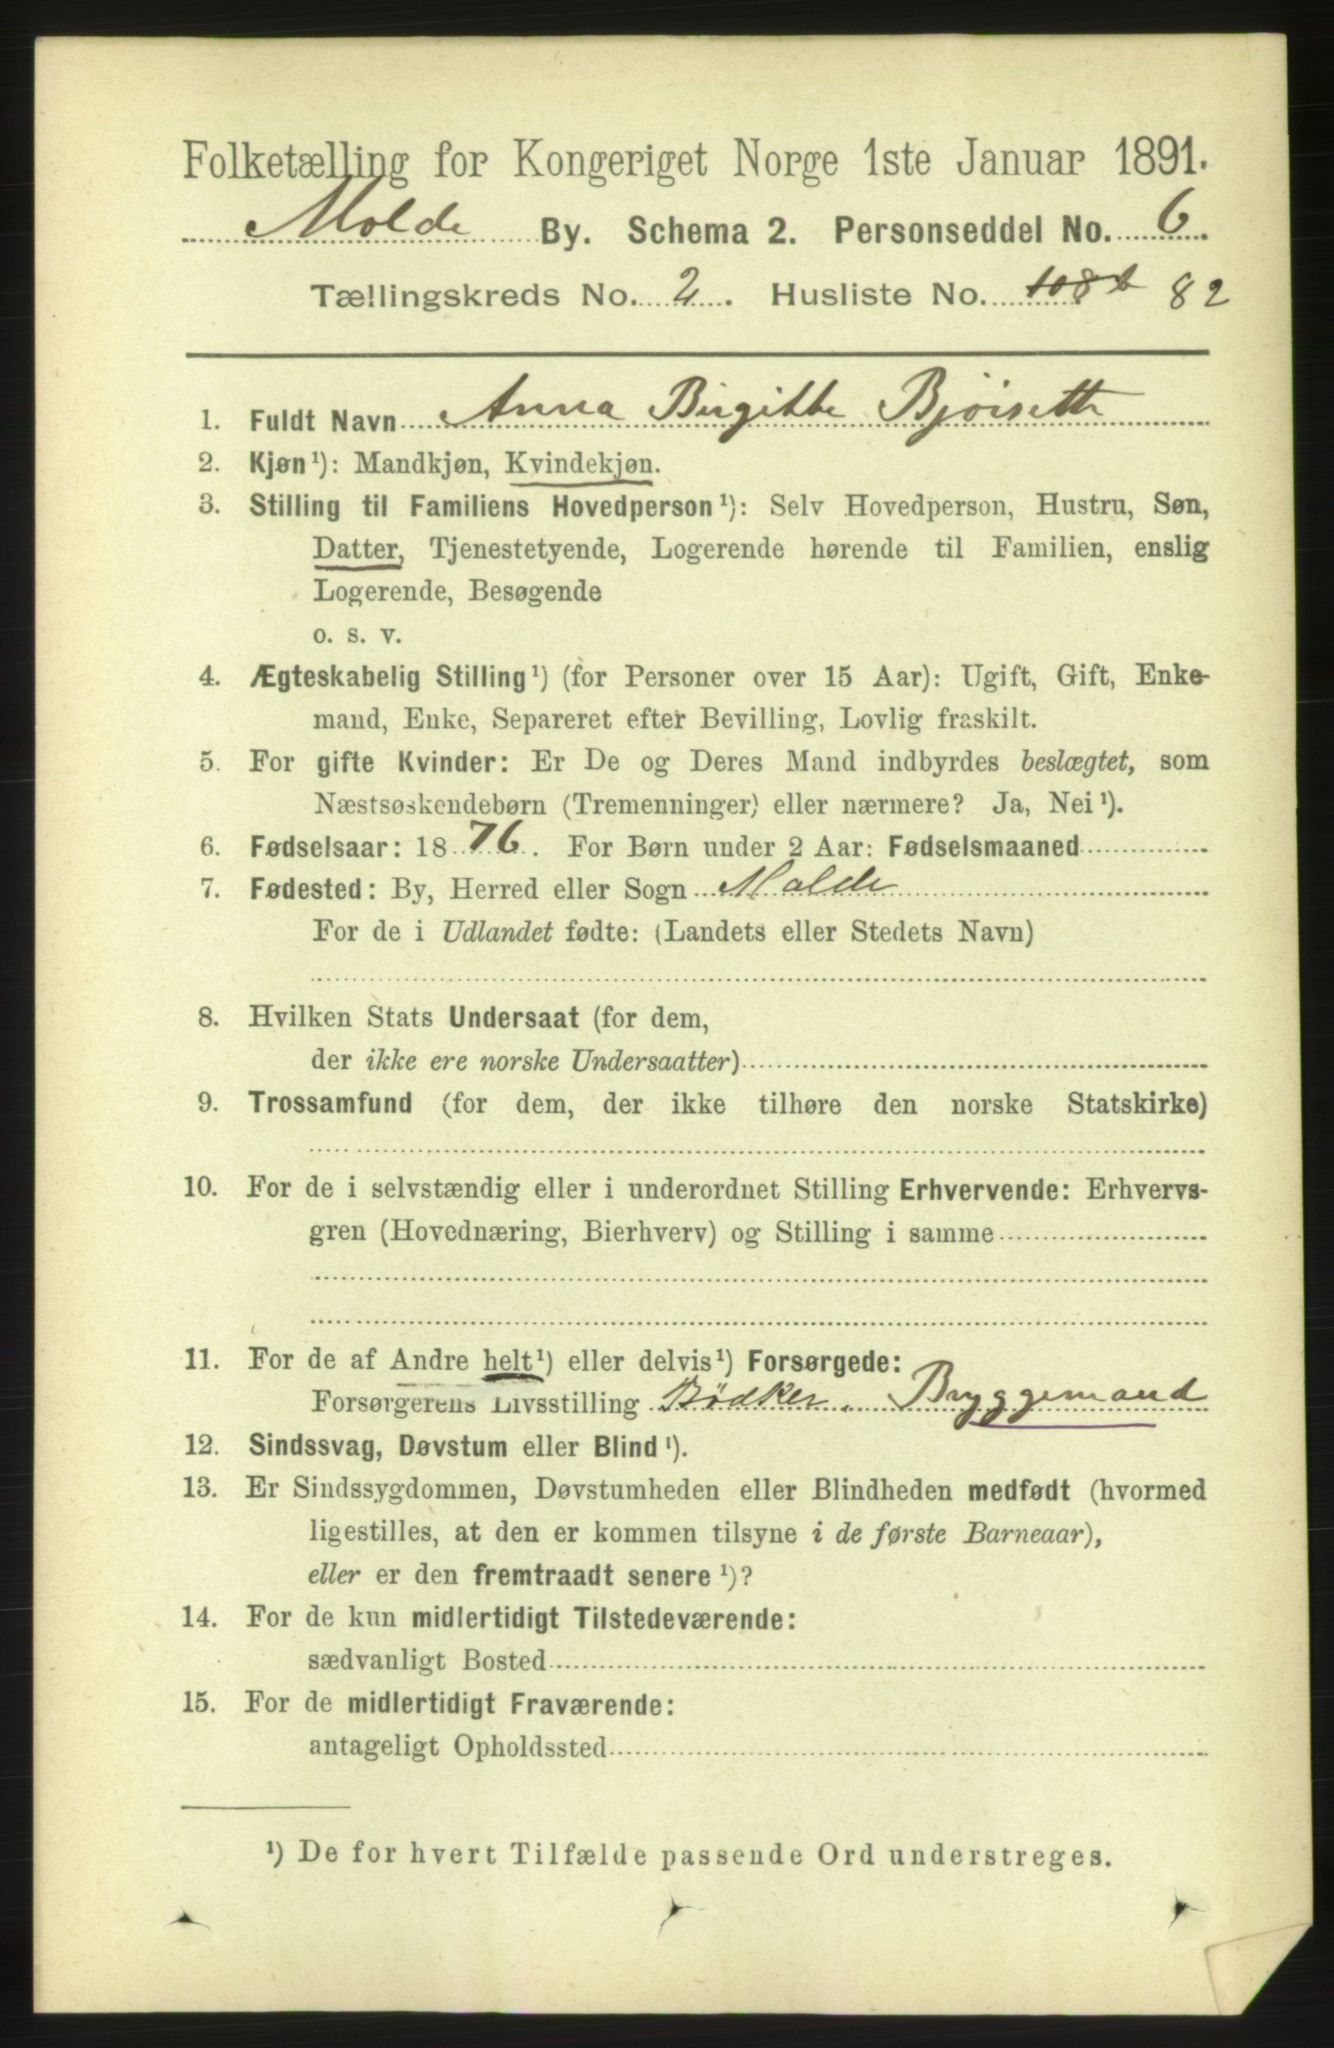 Folketælling for Kongeriget Norge 1ste Januar 1891.
Molde By. Schema 2. Personseddel No. 6.
Tællingskreds No. 2. Husliste No. 108b 82
1. Fuldt Navn Anna Birgitte Bjørsett
2. Kjøn¹): Mandkjøn, Kvindekjøn.
3. Stilling til Familiens Hovedperson¹): Selv Hovedperson, Hustru, Søn,
Datter, Tjenestetyende, Logerende hørende til Familien, enslig
Logerende, Besøgende
o. s. v.
4. Ægteskabelig Stilling¹) (for Personer over 15 Aar): Ugift, Gift, Enke-
mand, Enke, Separeret efter Bevilling, Lovlig fraskilt.
5. For gifte Kvinder: Er De og Deres Mand indbyrdes beslægtet, som
Næstsøskendebørn (Tremenninger) eller nærmere? Ja, Nei¹).
6. Fødselsaar: 1876. For Børn under 2 Aar: Fødselsmaaned
7. Fødested: By, Herred eller Sogn Molde
For de i Udlandet fødte: (Landets eller Stedets Navn)
8. Hvilken Stats Undersaat (for dem,
der ikke ere norske Undersaatter)
9. Trossamfund (for dem, der ikke tilhøre den norske Statskirke)
10. For de i selvstændig eller i underordnet Stilling Erhvervende: Erhvervs-
gren (Hovednæring, Bierhverv) og Stilling i samme
11. For de af Andre helt¹) eller delvis¹) Forsørgede:
Forsørgerens Livsstilling Bødker. Bryggemand
12. Sindssvag, Døvstum eller Blind¹).
13. Er Sindssygdommen, Døvstumheden eller Blindheden medfødt (hvormed
ligestilles, at den er kommen tilsyne i de første Barneaar),
eller er den fremtraadt senere¹)?
14. For de kun midlertidigt Tilstedeværende:
sædvanligt Bosted
15. For de midlertidigt Fraværende:
antageligt Opholdssted
¹) De for hvert Tilfælde passende Ord understreges.